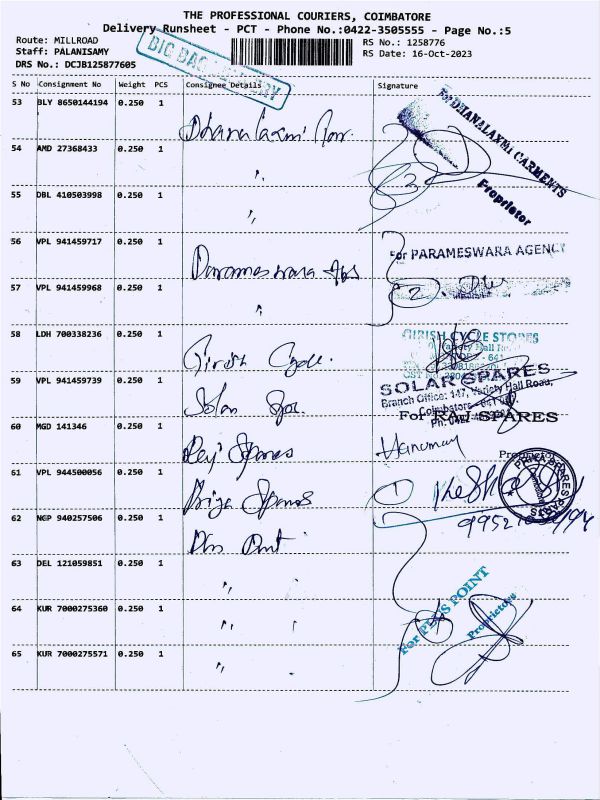 THE PROFESSIONAL COURIERS, COIMBATORE
Delivery Runsheet - PCT - Phone No.:0422-3505555 - Page No.:5
Route: MILLROAD
Staff: PALANISAMY
DRS No.: DCJB125877605
RS No.: 1258776
RS Date: 16-Oct-2023
BIG BAG
S No Consignment No Weight PCS Consignee Details Signature
53 BLY 8650144194 0.250 1
Dhanalaxmi
For DHANALAXMI GARMENTS
Proprietor
54 AMD 27368433 0.250 1
"
3
55 DBL 410503998 0.250 1
"
56 VPL 941459717 0.250 1
Parameswara
For PARAMESWARA AGENCY
57 VPL 941459968 0.250 1
"
2
58 LDH 700338236 0.250 1
Girish Cycle
GIRISH CYCLE STORES
59 VPL 941459739 0.250 1
Solar Spares
SOLAR SPARES
Branch Office: 147, Variety Hall Road,
Coimbatore
For RAJ SPARES
60 MGD 141346 0.250 1
Raj Spares
Hanuman
61 VPL 944500056 0.250 1
Priya Spares
1
PRIYA SPARES
62 NGP 940257506 0.250 1
63 DEL 121059851 0.250 1
"
64 KUR 7000275360 0.250 1
"
For PLUS POINT
Proprietors
65 KUR 7000275571 0.250 1
"